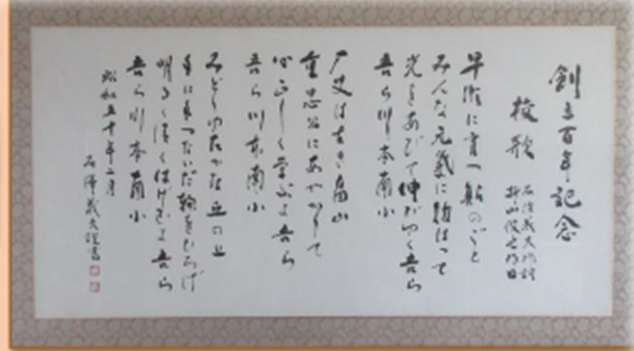 創立百年記念
校歌
石澤義夫作詞
早瀬に育つ鮎のごと
みんな元氣に胸はって
光をあびて伸びゆく吾ら
吾ら川本南小
厂史は古き畠山
重忠公にあやかりて
心正しく学ぶよ吾ら
吾ら川本南小
みどりゆたかな丘の上
手に手つないだ輪をひろげ
明るく清くはげむよ吾ら
吾ら川本南小
昭和五十年二月
石澤義夫謹書